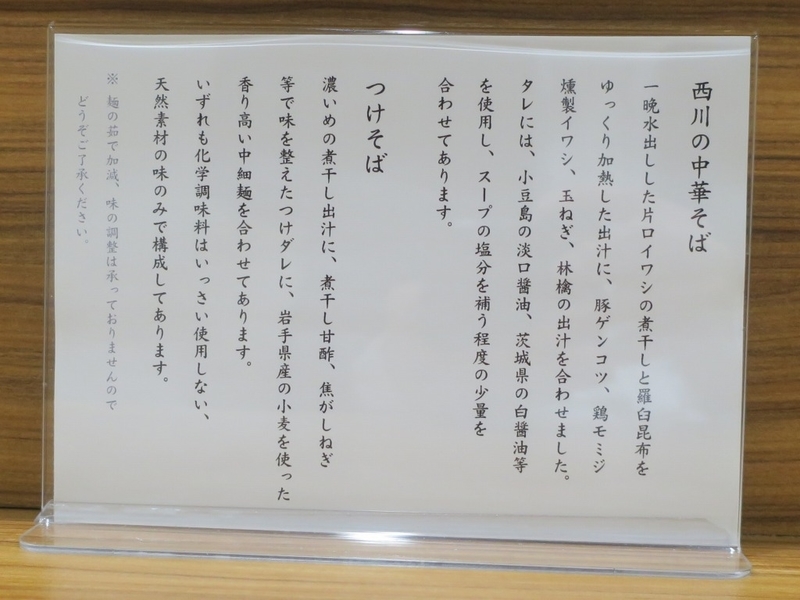 西川の中華そば
一晩水出しした片口イワシの煮干しと羅臼昆布を
ゆっくり加熱した出汁に、豚ゲンコツ、鶏モミジ
燻製イワシ、玉ねぎ、林檎の出汁を合わせました。
タレには、小豆島の淡口醤油、茨城県の白醤油等
を使用し、スープの塩分を補う程度の少量を
合わせてあります。
つけそば
濃いめの煮干し出汁に、煮干し甘酢、焦がしねぎ
等で味を整えたつけダレに、岩手県産の小麦を使った
香り高い中細麺を合わせてあります。
いずれも化学調味料はいっさい使用しない、
天然素材の味のみで構成してあります。
※ 麺の茹で加減、味の調整は承っておりませんので
どうぞご了承ください。